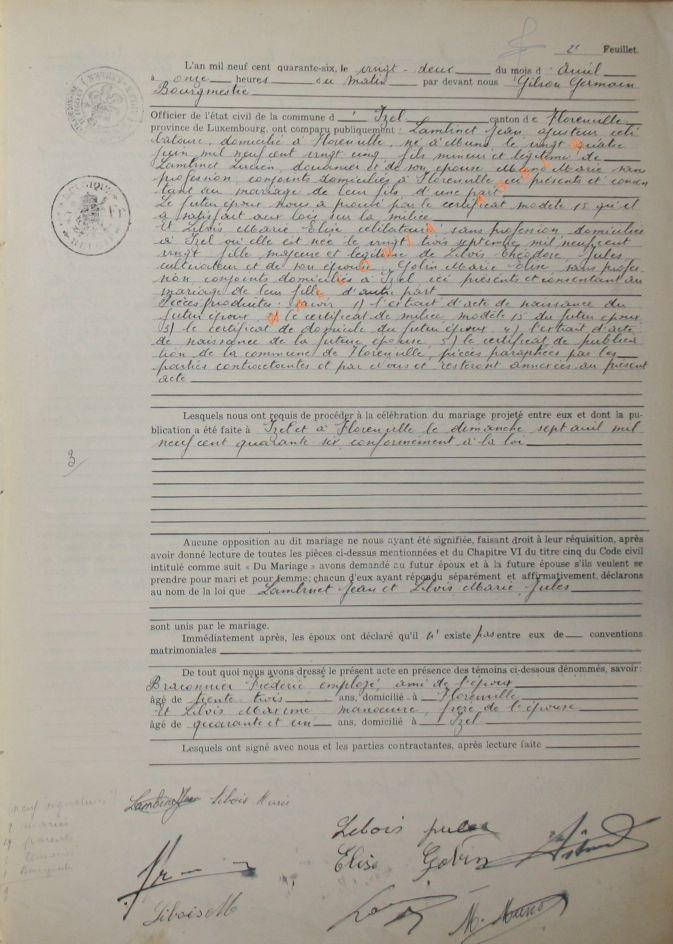 2e Feuillet.
L'an mil neuf cent quarante-six, le vingt-deux du mois d'Avril
à onze heures du matin par devant nous Gilson Germain
Bourgmestre
Officier de l'état civil de la commune d'Izel canton de Florenville
province de Luxembourg, ont comparu publiquement : Lambinet Jean, ajusteur, céli
bataire, domicilié à Florenville, né à Muno, le vingt quatre
juin mil neuf cent vingt cinq, fils mineur et légitime de
Lambinet Lucien, douanier et de son épouse Marie sans
profession, conjoints domiciliés à Florenville ici présents et consen
tant au mariage de leur fils, d'une part.
Le futur époux nous a prouvé par le certificat modèle 15 qu'il
a satisfait aux lois sur la milice.
Et Libois Marie Elise célibataire, sans profession, domiciliée
à Izel où elle est née le vingt trois septembre mil neuf cent
vingt fille majeure et légitime de Libois Théodore, Jules
cultivateur et de son épouse Gobin Marie Elise, sans profes
sion conjoints domiciliés à Izel ici présents et consentant au
mariage de leur fille, d'autre part.
Pièces produites : savoir 1) l'extrait d'acte de naissance du
futur époux, 2) le certificat de milice modèle 15 du futur époux
3) le certificat de domicile du futur époux 4) l'extrait d'acte
de naissance de la future épouse, 5) le certificat de publica
tion de la commune de Florenville, pièces paraphées par les
parties contractantes et par nous et resteront annexées au présent
acte
Lesquels nous ont requis de procéder à la célébration du mariage projeté entre eux et dont la pu-
blication a été faite à Izel et à Florenville le dimanche sept avril mil
neuf cent quarante-six conformément à la loi
3/
Aucune opposition au dit mariage ne nous ayant été signifiée, faisant droit à leur réquisition, après
avoir donné lecture de toutes les pièces ci-dessus mentionnées et du Chapitre VI du titre cinq du Code civil
intitulé comme suit « Du Mariage » avons demandé au futur époux et à la future épouse s'ils veulent se
prendre pour mari et pour femme; chacun d'eux ayant répondu séparément et affirmativement, déclarons
au nom de la loi que Lambinet Jean et Libois Marie Jules
sont unis par le mariage.
Immédiatement après, les époux ont déclaré qu'il n'existe pas entre eux de conventions
matrimoniales
De tout quoi nous avons dressé le présent acte en présence des témoins ci-dessous dénommés, savoir:
Braconnier Frédéric employé, ami de l'époux
âgé de trente trois ans, domicilié à Florenville
Et Libois Maxime manœuvre, frère de l'épouse
âgé de quarante et un ans, domicilié à Izel
Lesquels ont signé avec nous et les parties contractantes, après lecture faite
Lambinet Libois Marie
Libois jules
Elise Gobin
Libois M